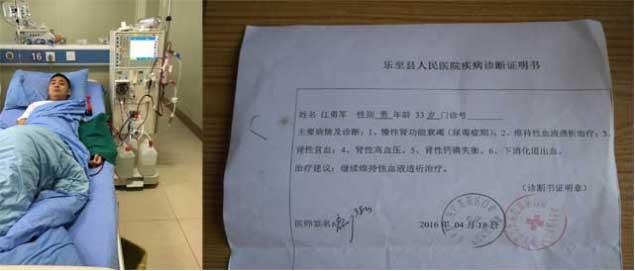 16
乐至县人民医院疾病诊断证明书
姓名 江勇军 性别 男 年龄 33 岁 门诊号
主要病情及诊断：1、慢性肾功能衰竭（尿毒症期）；2、维持性血液透析治疗；3、
肾性贫血；4、肾性高血压。5、肾性钙磷失衡。6、下消化道出血。
治疗建议：继续维持性血液透析治疗。
（诊断书证明章）
医师签名
2016 年 04 月 18 日